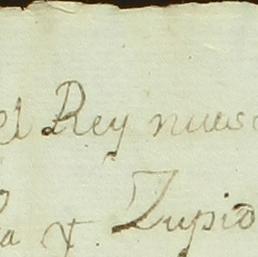 el Rey nues
a y. Zupio